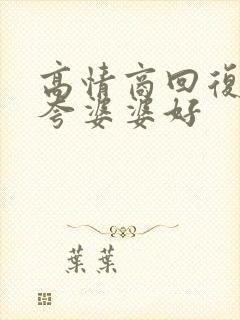 高情商回復
夸婆婆好
葉葉